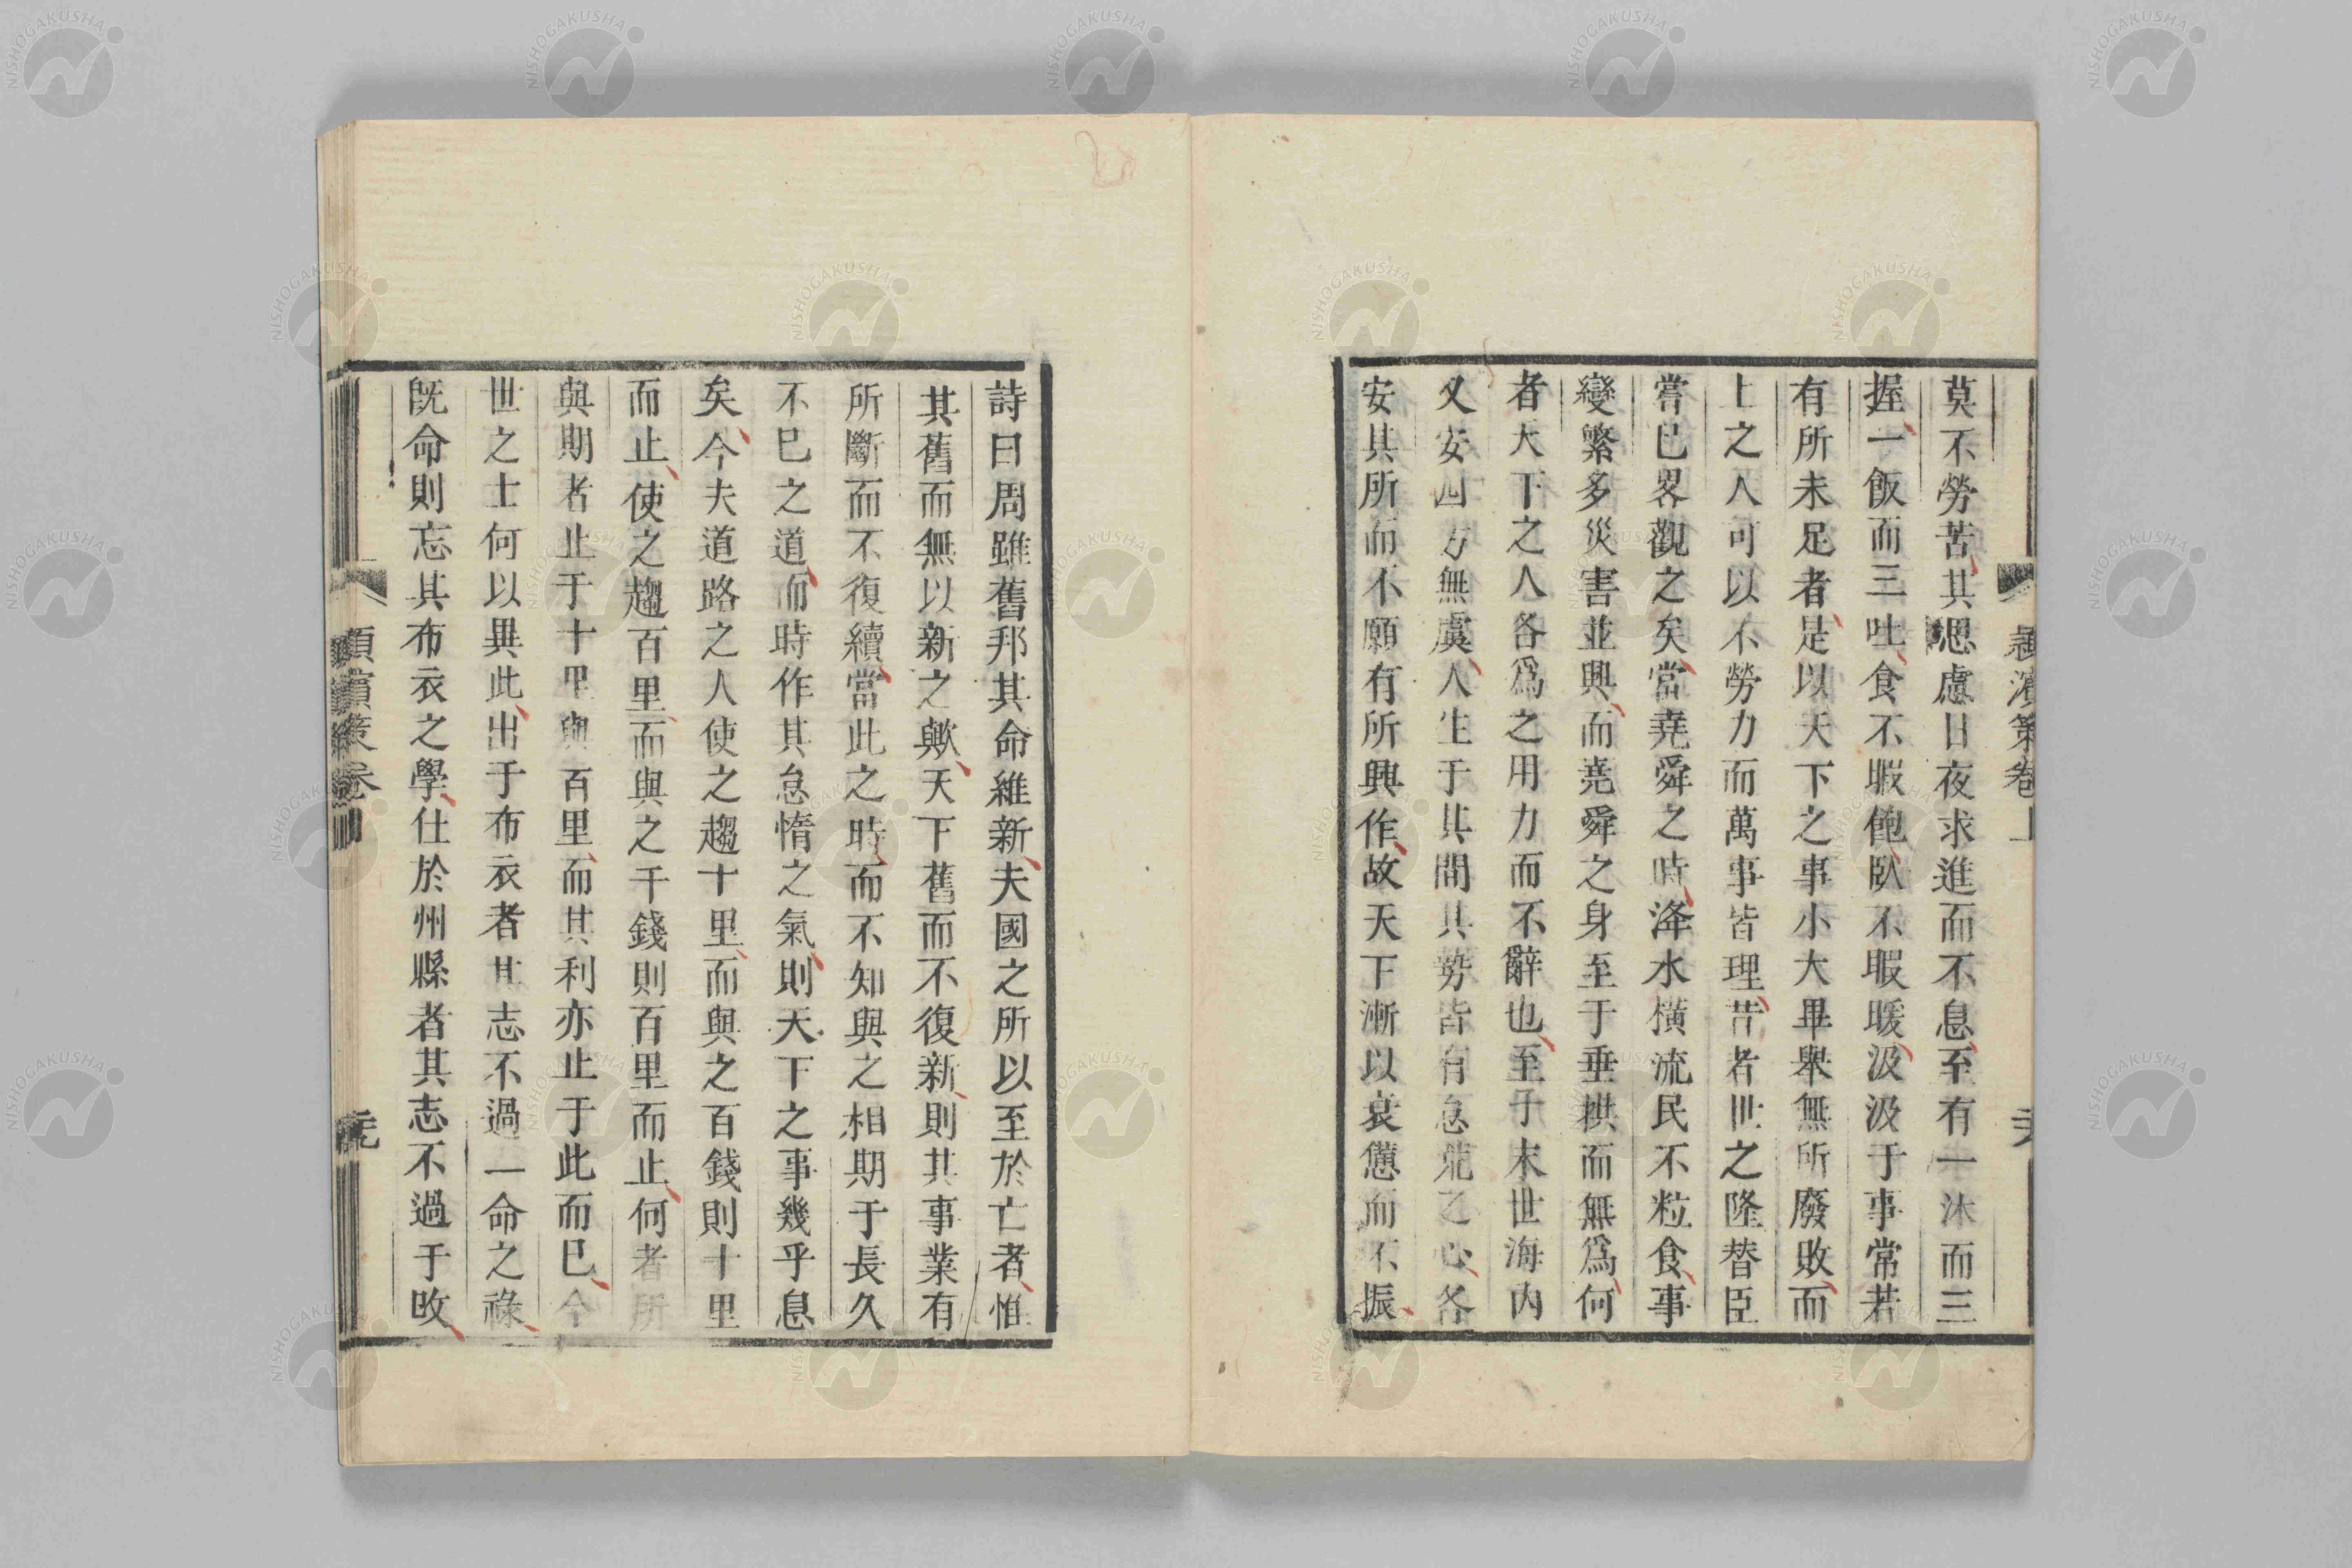 莫不勞苦其思慮日夜求進而不息至有一沐而三
握一飯而三吐食不暇飽臥不暇暖汲汲于事常若
有所未足者是以天下之事小大畢舉無所廢敗而
上之人可以不勞力而萬事皆理昔者世之隆替臣
嘗已畧觀之矣當堯舜之時洚水橫流民不粒食事
變繁多災害並興而堯舜之身至于垂拱而無為何
者天下之人各為之用力而不辭也至于末世海內
乂安四方無虞人生于其間其勢皆有怠荒之心各
安其所而不願有所興作故天下漸以衰憊而不振
詩曰周雖舊邦其命維新夫國之所以至於亡者惟
其舊而無以新之歟天下舊而不復新則其事業有
所斷而不復續當此之時而不知與之相期于長久
不已之道而時作其怠惰之氣則天下之事幾乎息
矣今夫道路之人使之趨十里而與之百錢則十里
而止使之趨百里而與之千錢則百里而止何者所
與期者止于十里與百里而其利亦止于此而已今
世之士何以異此出于布衣者其志不過一命之祿
既命則忘其布衣之學仕於州縣者其志不過于改
潁濱策卷
NISHOGAKUSHA